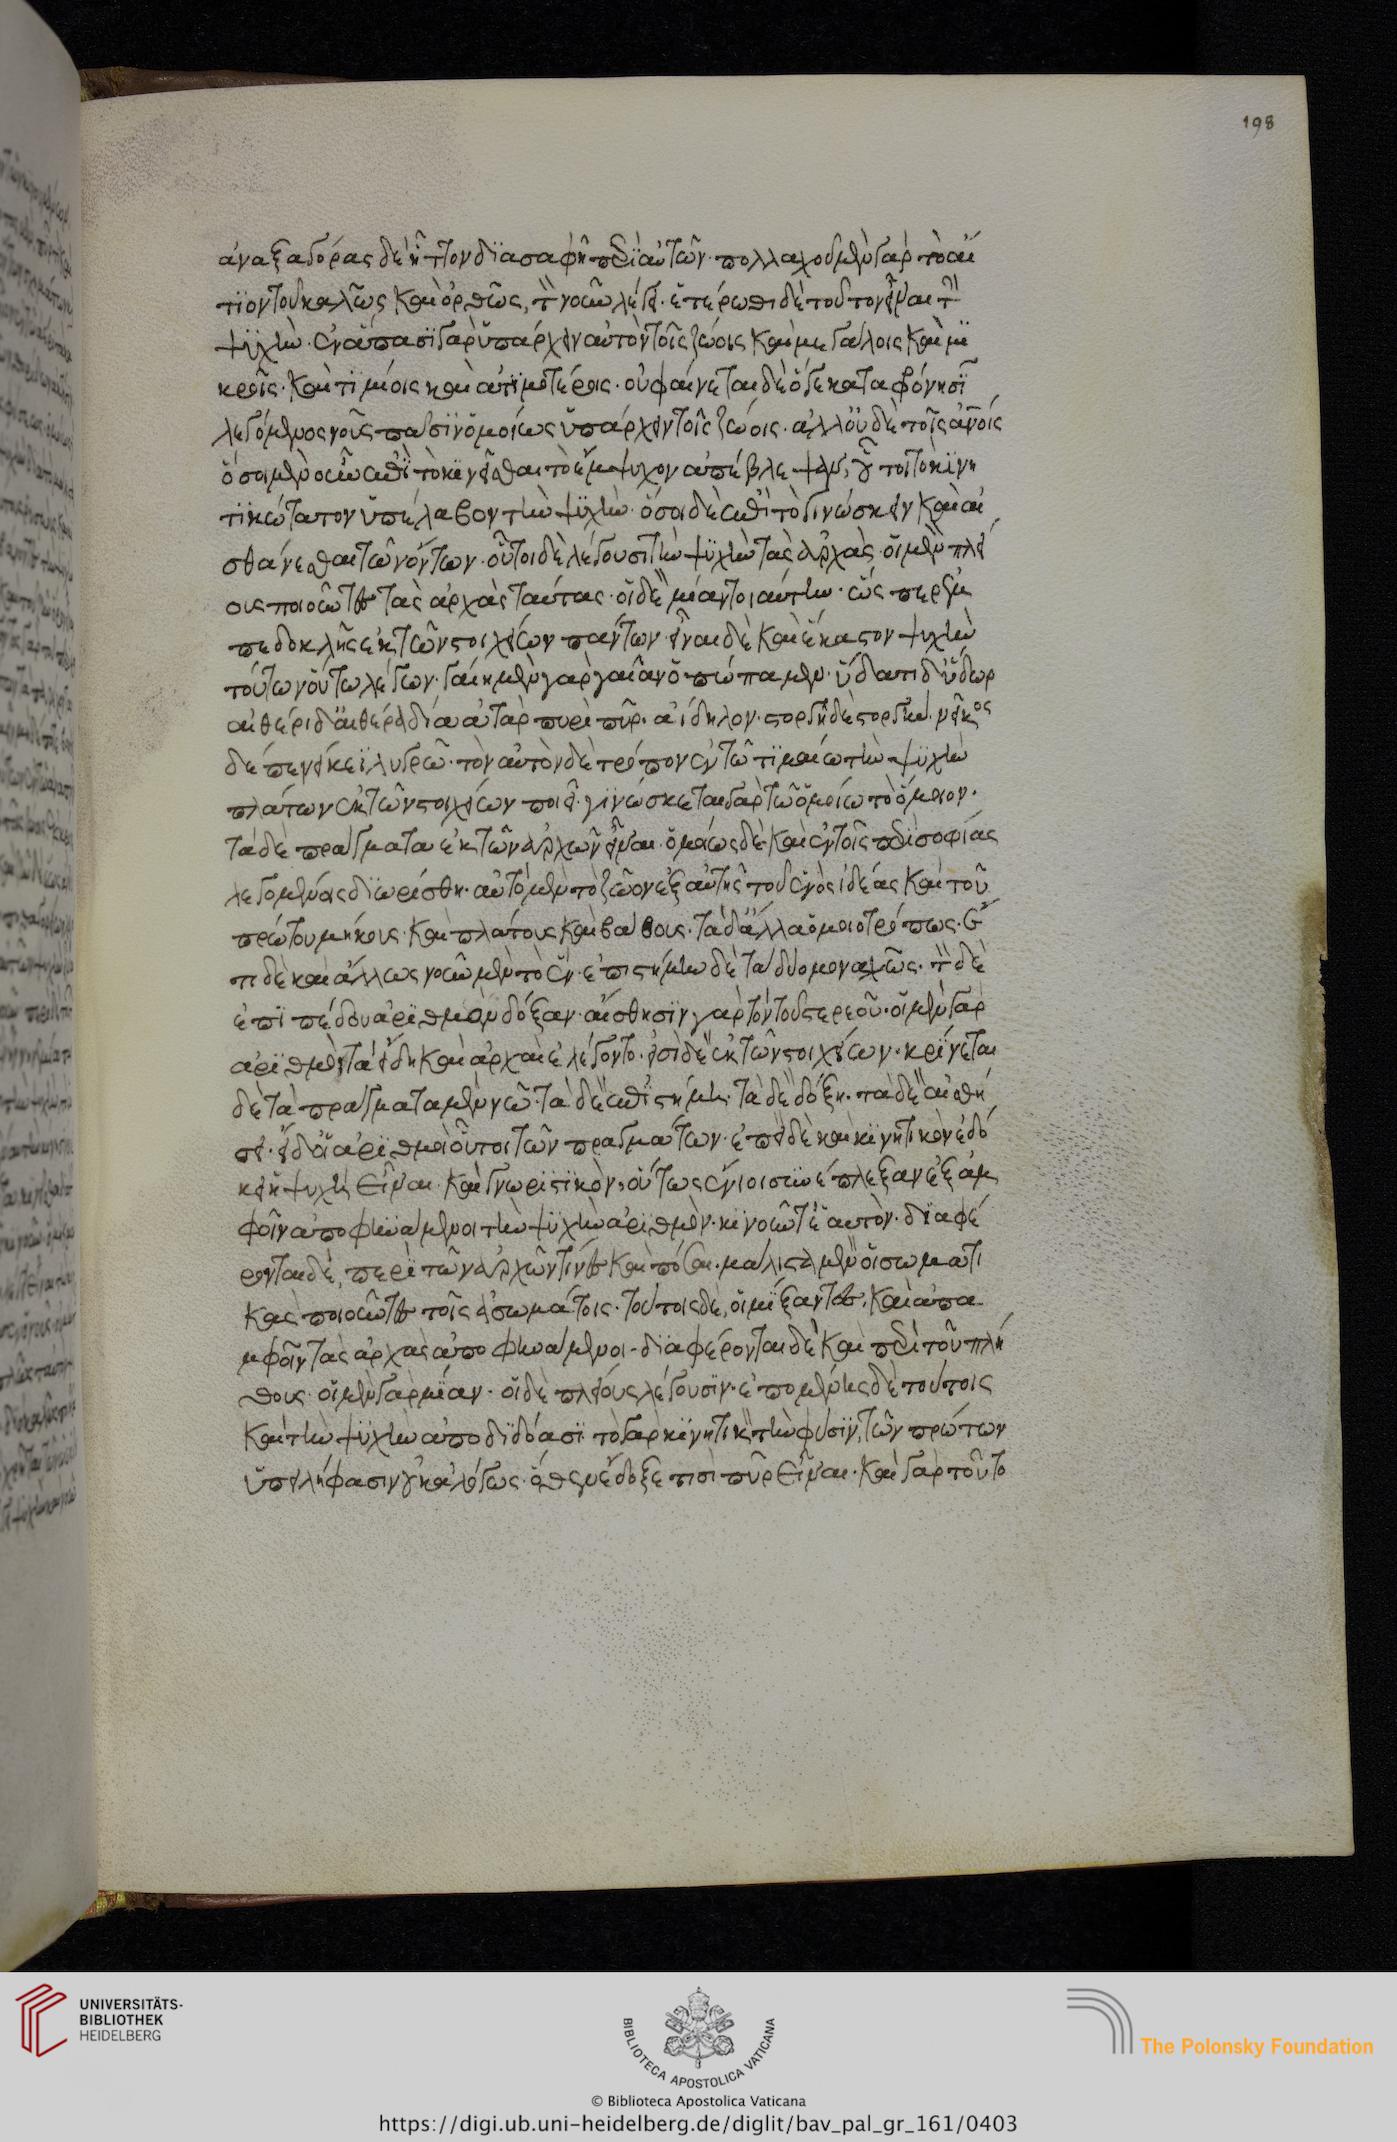 ἀναξαγόρας δὲ ἧττον διασαφεῖ περὶ αὐτῶν· πολλαχοῦ μὲν γὰρ τὸ αἴ
τιον τοῦ καλῶς καὶ ὀρθῶς, τὸν νοῦν λέγει· ἑτέρωθι δὲ τοῦτον εἶναι τὴν
ψυχήν· ἐν ἅπασι γὰρ ὑπάρχειν αὐτὸν τοῖς ζώοις καὶ μεγάλοις καὶ μι
κροῖς· καὶ τιμίοις καὶ ἀτιμοτέροις· οὐ φαίνεται δὲ ὅ γε κατὰ φρόνησιν
λεγόμενος νοῦς πᾶσιν ὁμοίως ὑπάρχειν τοῖς ζώοις· ἀλλ' οὐδὲ τοῖς ἀνοις
ὅσοι μὲν οὖν ἐπὶ τὸ κινεῖσθαι τὸ ἔμψυχον ἀπέβλεψαν, οὗτοι τὸ κινη
τικώτατον ὑπέλαβον τὴν ψυχήν· ὅσοι δὲ ἐπὶ τὸ γινώσκειν καὶ αἰ
σθάνεσθαι τῶν ὄντων· οὗτοι δὲ λέγουσι τὴν ψυχὴν τὰς ἀρχὰς· οἱ μὲν πλεί
ους ποιοῦντες τὰς ἀρχὰς ταύτας· οἱ δὲ μίαν τοιαύτην· ὥσπερ ἐμ
πεδοκλῆς ἐκ τῶν στοιχείων πάντων· εἶναι δὲ καὶ ἕκαστον ψυχὴν
τούτων οὕτω λέγων· γαίη μὲν γὰρ γαῖαν ὀπώπαμεν· ὕδατι δ' ὕδωρ
αἰθέρι δ' αἰθέρα δία ἀτὰρ πυρὶ πῦρ· ἀίδηλον· στοργῇ δὲ στοργήν· νεῖκος
δέ τε νείκει λυγρῷ· τὸν αὐτὸν δὲ τρόπον ἐν τῷ τιμαίῳ τὴν ψυχὴν
πλάτων ἐκ τῶν στοιχείων ποιεῖ· γινώσκεται γὰρ τῷ ὁμοίῳ τὸ ὅμοιον·
τὰ δὲ πράγματα ἐκ τῶν ἀρχῶν εἶναι· ὁμοίως δὲ καὶ ἐν τοῖς περὶ σοφίας
λεγομένοις διωρίσθη· αὐτὸ μὲν τὸ ζῶον ἐξ αὐτῆς τοῦ ἑνὸς ἰδέας καὶ τοῦ
πρώτου μήκους· καὶ πλάτους καὶ βάθους· τὰ δ' ἄλλα ὁμοιοτρόπως· ἔ
τι δὲ καὶ ἄλλως νοῦν μὲν τὸ ἕν· ἐπιστήμην δὲ τὰ δύο μοναχῶς· τὸν δὲ
ἐπιπέδου ἀριθμὸν δόξαν· αἴσθησιν γὰρ τὸν τοῦ στερεοῦ· οἱ μὲν γὰρ
ἀριθμοὶ τὰ εἴδη καὶ ἀρχαὶ ἐλέγοντο· εἰσὶ δὲ ἐκ τῶν στοιχείων· κρίνεται
δὲ τὰ πράγματα τὰ μὲν νῷ· τὰ δὲ ἐπιστήμῃ· τὰ δὲ δόξῃ· τὰ δὲ αἰσθή
σει· εἴδη δ' ἀριθμοὶ οὗτοι τῶν πραγμάτων· ἐπεὶ δὲ καὶ κινητικὸν ἐδό
κει ἡ ψυχὴ εἶναι· καὶ γνωριστικόν, οὕτως ἔνιοι συνέπλεξαν ἐξ ἀμ
φοῖν ἀποφηνάμενοι τὴν ψυχὴν ἀριθμὸν· κινοῦντ' ἑαυτόν· διαφέ
ρονται δὲ, περὶ τῶν ἀρχῶν τίνες καὶ πόσαι· μάλιστα μὲν οἱ σωματι
κὰς ποιοῦντες τοῖς ἀσωμάτοις· τούτοις δὲ, οἱ μίξαντες, καὶ ἀπ' ἀ
μφοῖν τὰς ἀρχὰς ἀποφηνάμενοι· διαφέρονται δὲ καὶ περὶ τοῦ πλή
θους· οἱ μὲν γὰρ μίαν· οἱ δὲ πλείους λέγουσιν· ἑπομένως δὲ τούτοις
καὶ τὴν ψυχὴν ἀποδιδόασι τὸ γὰρ κινητικὸν τὴν φύσιν, τῶν πρώτων
ὑπειλήφασιν οὐκ ἀλόγως· ὅθεν ἔδοξε τισὶ πῦρ εἶναι· καὶ γὰρ τοῦτο
198
UNIVERSITÄTS-
BIBLIOTHEK
HEIDELBERG
BIBLIOTECA APOSTOLICA VATICANA
The Polonsky Foundation
© Biblioteca Apostolica Vaticana
https://digi.ub.uni-heidelberg.de/diglit/bav_pal_gr_161/0403